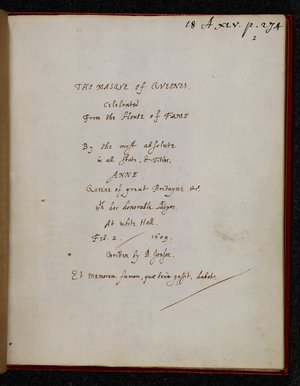 18 A XLV. p. 274
1
THE MASQVE of QVEENES
Celebrated
From the House of FAME
By the most absolute
in all State, & Titles,
ANNE
Queene of great Britayne, &c.
Wth her honorable Ladyes.
At white Hall.
Feb. 2. 1609.
Written by B. Jonson.
Et memorem famam, quæ bene gessit, habet.